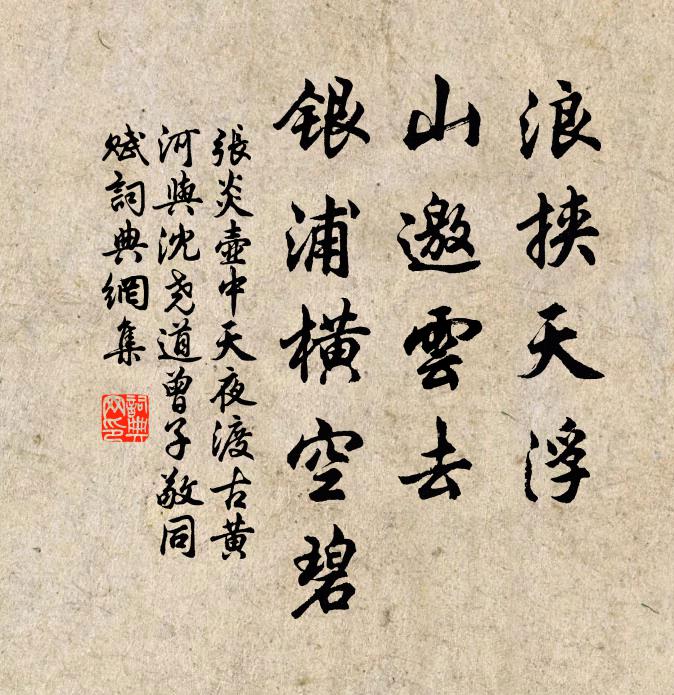 浪挾天浮
山邀雲去
銀浦橫空碧
張炎壺中天夜渡古黃
河與沈堯道曾子敬同
賦詞典網集
詞典
网印